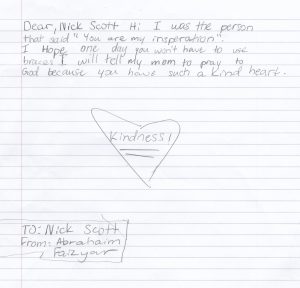 Dear, Nick Scott Hi I was the person
that said "You are my insperation".
I Hope one day you won't have to use
braces I will tell my mom to pray to
God because you have such a kind heart.
Kindness!
TO: Nick Scott
From: Abrahaim
Faizyar